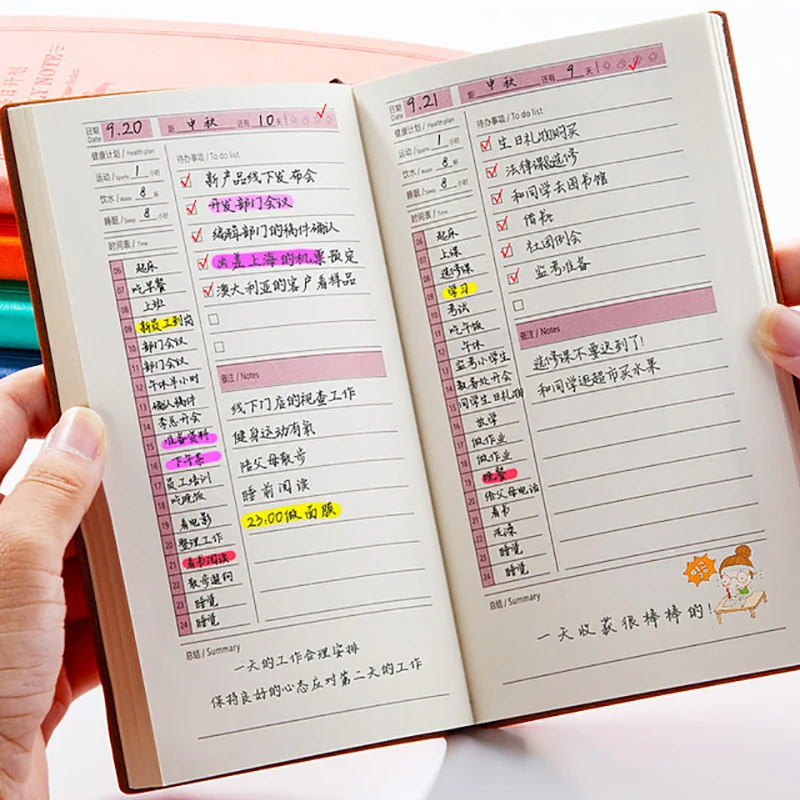 日期 9.20 距 中秋 还有 10 天
Date
健康计划 / Health plan
运动 / Sports 1 小时
饮水 / Water 8 杯
睡眠 / Sleep 8 小时
时间表 / Time
06 起床
07 吃早餐
08 上班
09 新员工到岗
10 部门会议
11 部门会议
12 午休半小时
13 确认稿件
14 李总开会
15 准备资料
16 下午茶
17 员工培训
18 吃晚饭
19 看电影
20 整理工作
21 看书阅读
22 散步遛狗
23 睡觉
24 睡觉
待办事项 / To do list
新产品线下发布会
开发部门会议
编辑部门的稿件确认
出差上海的机票预定
澳大利亚的客户看样品
备注 / Notes
线下门店的视查工作
健身运动有氧
陪父母散步
睡前阅读
23:00做面膜
总结 / Summary
一天的工作合理安排
保持良好的心态应对第二天的工作
日期 9.21 距 中秋 还有 9 天
Date
健康计划 / Health plan
运动 / Sports 1 小时
饮水 / Water 8 杯
睡眠 / Sleep 8 小时
时间表 / Time
06 起床
07 上课
08 选修课
09 学习
10 考试
11 吃午饭
12 午休
13 监考小学生
14 教务处开会
15 同学生日礼物
16 放学
17 做作业
18 做作业
19 晚餐
20 给父母电话
21 看书
22 洗澡
23 睡觉
24 睡觉
待办事项 / To do list
生日礼物购买
法律课选修
和同学去图书馆
借书
社团例会
监考准备
备注 / Notes
选修课不要迟到了!
和同学逛超市买水果
总结 / Summary
一天收获很棒棒的!